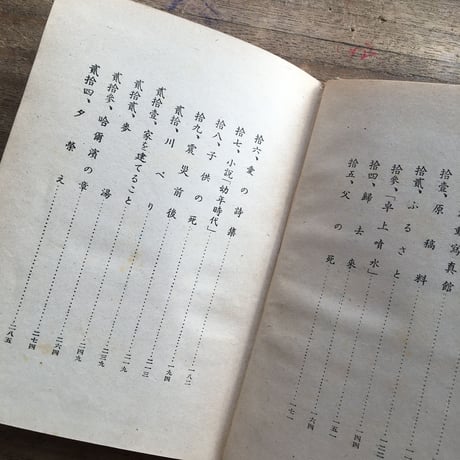 動寫真館
拾壹、原稿料
拾貳、ふるさと
拾參、「卓上噴水」……一五一
拾四、歸去來……一六四
拾五、父の死……一七一
拾六、愛の詩集……一八二
拾七、小説「幼年時代」……一九四
拾八、子供の死……二一三
拾九、震災前後……二二九
貳拾、川べり……二三九
貳拾壹、家を建てること……二四九
貳拾貳、麥湯……二六四
貳拾參、哈爾濱の章……二七四
貳拾四、夕榮え……二八五